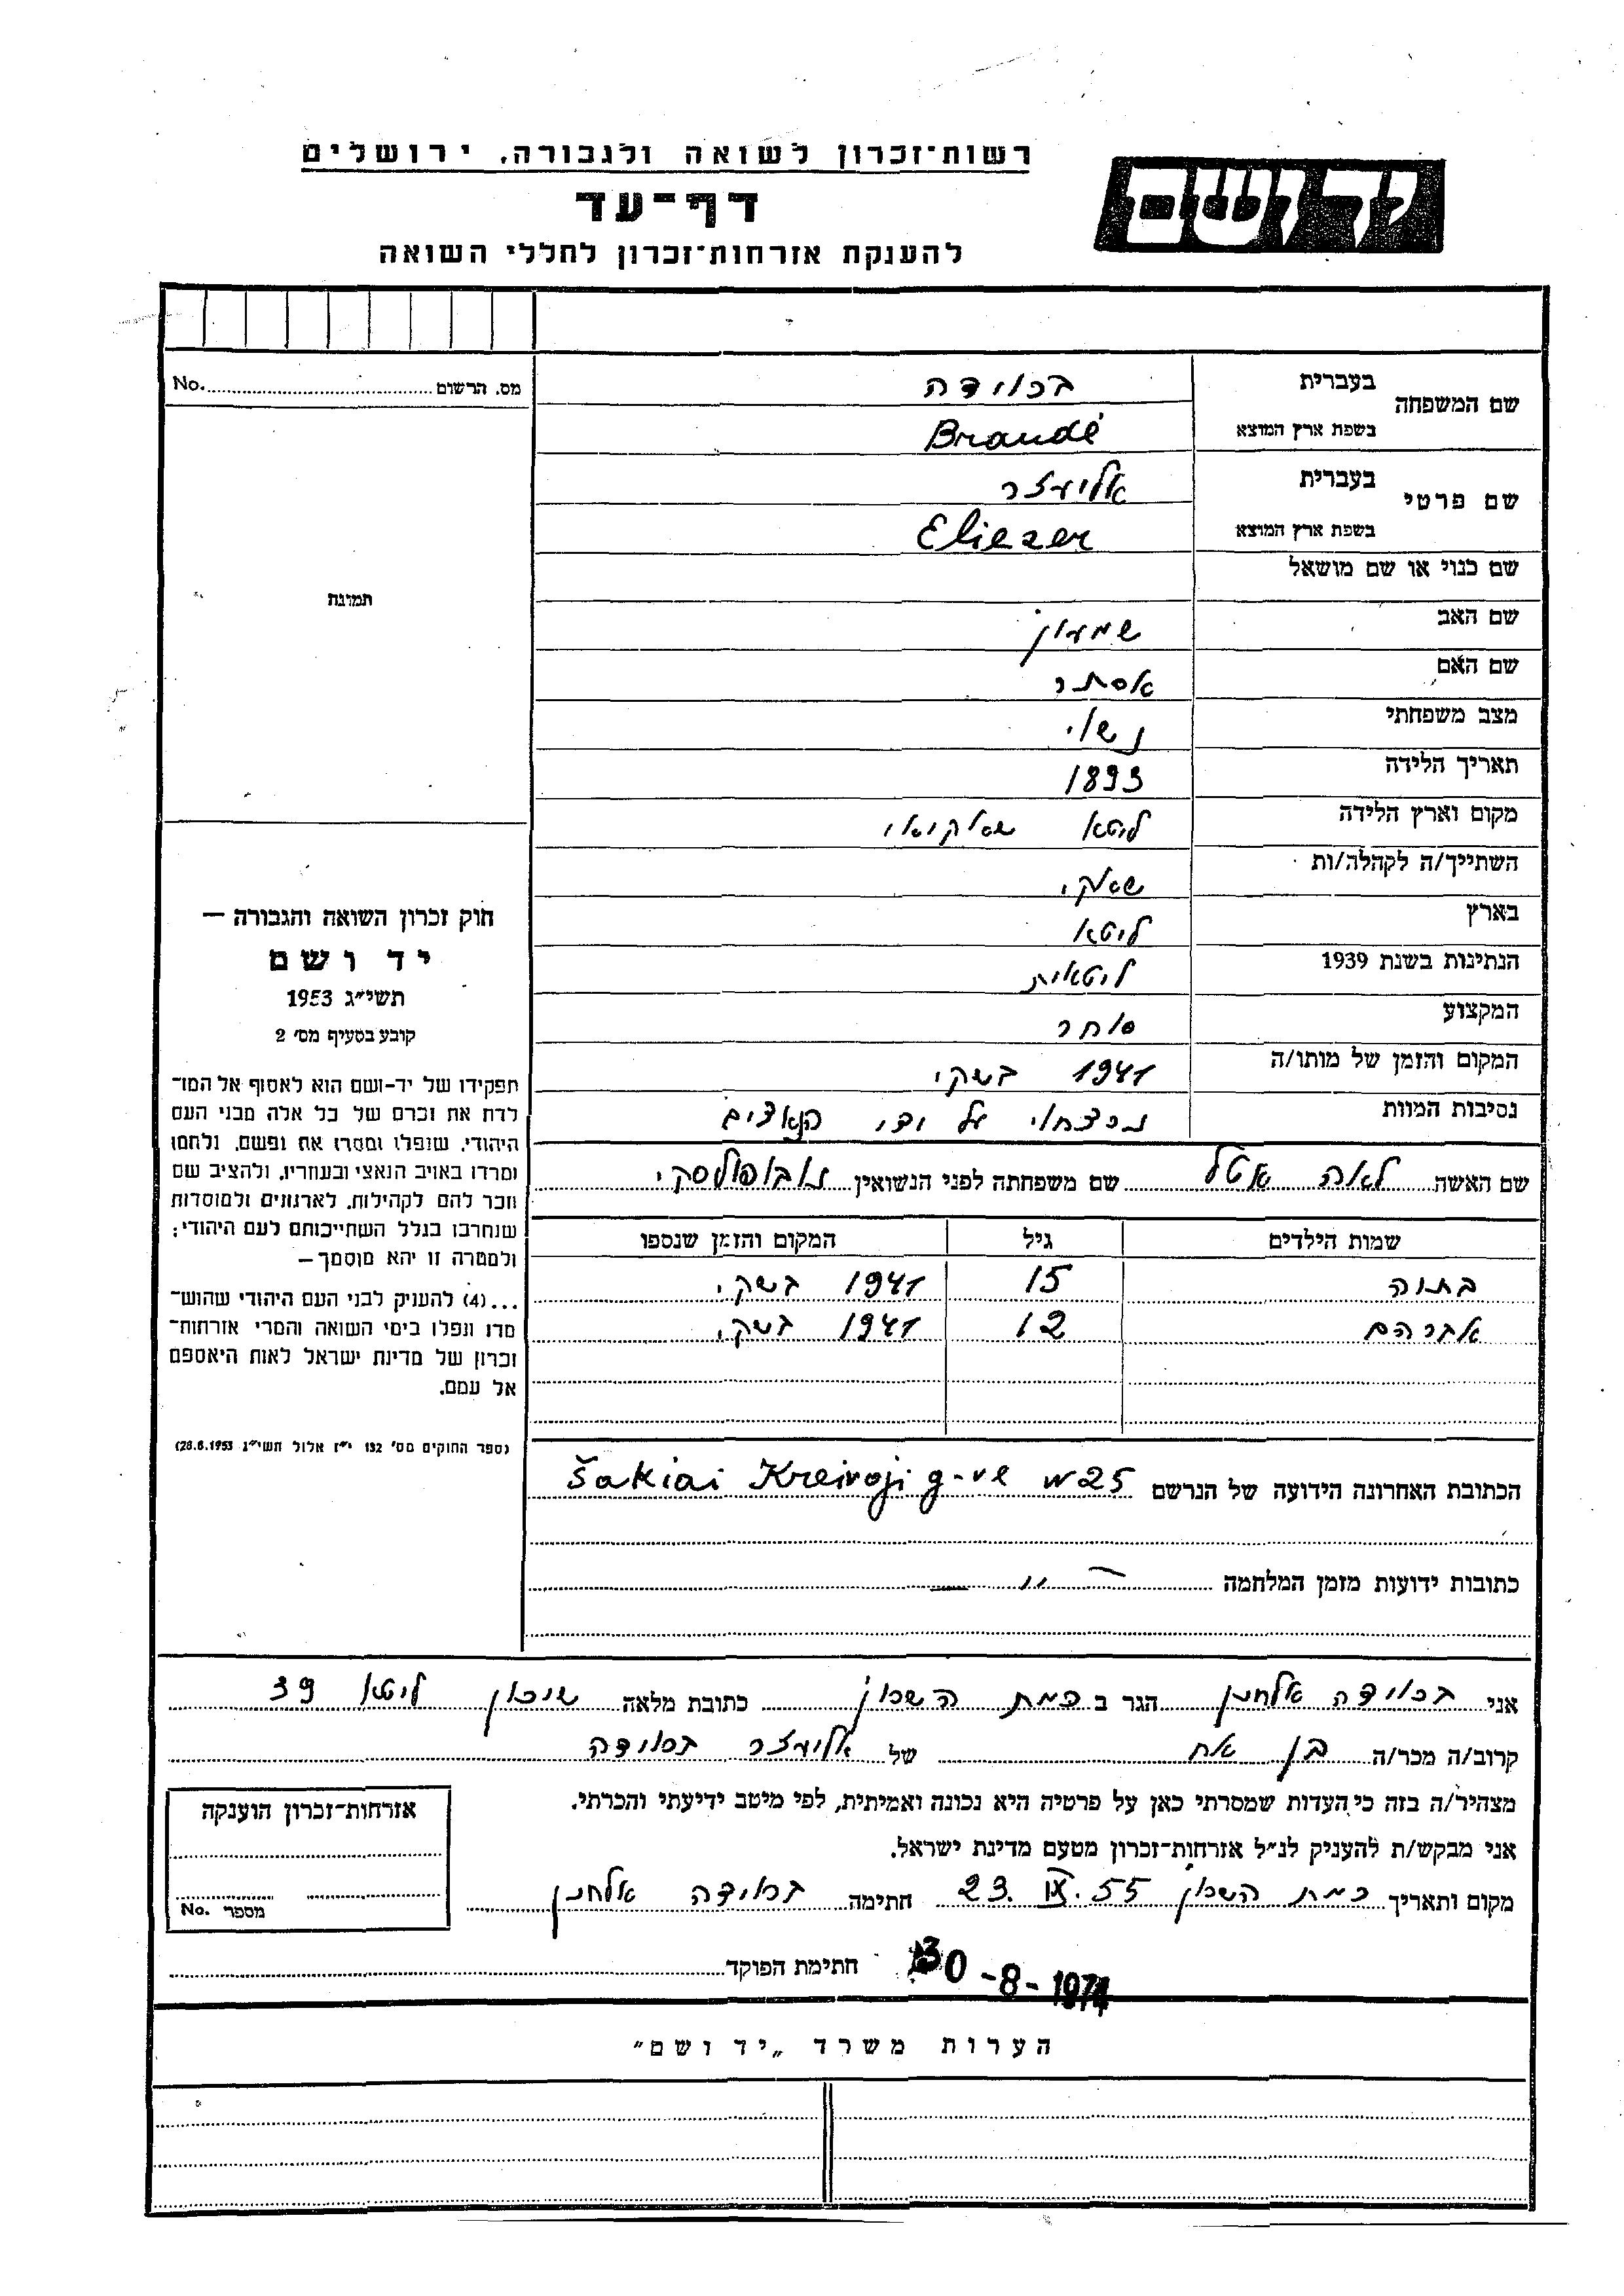 רשות־זכרון לשואה ולגבורה, ירושלים
יד ושם
דף־עד
להענקת אזרחות־זכרון לחללי השואה
מס. הרשום No.
תמונה
שם המשפחה בעברית ברוידה
בשפת ארץ המוצא Braudė
שם פרטי בעברית אליעזר
בשפת ארץ המוצא Eliezer
שם כנוי או שם מושאל
שם האב שמעון
שם האם אסתר
מצב משפחתי נשוי
תאריך הלידה 1893
מקום וארץ הלידה ליטא שאקיאי
השתייך/ה לקהלה/ות שאקי
בארץ ליטא
הנתינות בשנת 1939 ליטאית
המקצוע סוחר
המקום והזמן של מותו/ה 1941 בשקי
נסיבות המוות נרצח על ידי הנאצים
שם האשה לאה אטל שם משפחתה לפני הנשואין
שמות הילדים גיל המקום והזמן שנספו
בתיה 15 1941 בשקי
אברהם 12 1941 בשקי
הכתובת האחרונה הידועה של הנרשם Šakiai Kreivoji g-ve N 25
כתובות ידועות מזמן המלחמה — " —
חוק זכרון השואה והגבורה —
יד ושם
תשי״ג 1953
קובע בסעיף מס׳ 2
תפקידו של יד-ושם הוא לאסוף אל המו־
לדת את זכרם של כל אלה מבני העם
היהודי, שנפלו ומסרו את נפשם, נלחמו
ומרדו באויב הנאצי ובעוזריו, ולהציב שם
וזכר להם לקהילות, לארגונים ולמוסדות
שנחרבו בגלל השתייכותם לעם היהודי;
ולמטרה זו יהא מוסמך—
...(4) להעניק לבני העם היהודי שהוש־
מדו ונפלו בימי השואה והמרי אזרחות־
זכרון של מדינת ישראל לאות היאספם
אל עמם.
(ספר החוקים מס׳ 132 י״ז אלול תשי״ג 28.8.1953)
אני ברוידה אלחנן הגר ב רמת השרון כתובת מלאה שיכון ליטא 39
קרוב/ה מכר/ה בן אח של אליעזר ברוידה
מצהיר/ה בזה כי העדות שמסרתי כאן על פרטיה היא נכונה ואמיתית, לפי מיטב ידיעתי והכרתי.
אני מבקש/ת להעניק לנ״ל אזרחות־זכרון מטעם מדינת ישראל.
מקום ותאריך רמת השרון 23. IX. 55 חתימה ברוידה אלחנן
אזרחות־זכרון הוענקה
מספר No.
חתימת הפוקד
30 -8- 1974
הערות משרד „יד ושם״